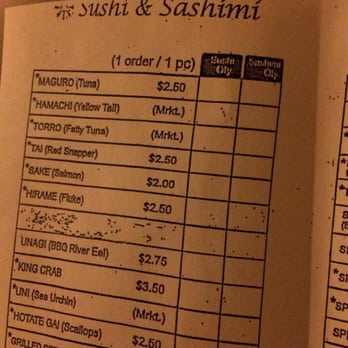 Sushi & Sashimi
(1 order / 1 pc) Sushi Qty Sashimi Qty
*MAGURO (Tuna) $2.50
*HAMACHI (Yellow Tail) (Mrkt.)
*TORRO (Fatty Tuna) (Mrkt.)
*TAI (Red Snapper) $2.50
*SAKE (Salmon) $2.00
*HIRAME (Fluke) $2.50
UNAGI (BBQ River Eel) $2.75
*KING CRAB $3.50
*UNI (Sea Urchin) (Mrkt.)
*HOTATE GAI (Scallops) $2.50